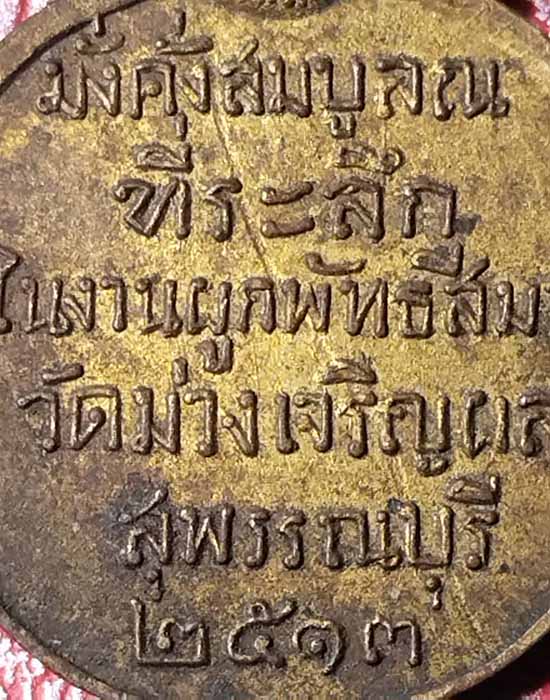 มั่งคั่งสมบูลณ
ที่ระลึก
ในงานผูกพัทธสีมา
วัดม่วงเจริญผล
สุพรรณบุรี
๒๕๑๓